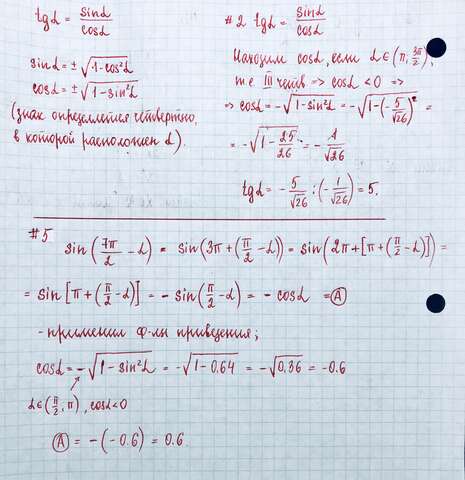 tgα = sinα/cosα
sinα = ±√(1-cos²α)
cosα = ±√(1-sin²α)
(знак определяется четвертью,
в которой расположен α).
#2 tgα = sinα/cosα
Находим cosα, если α∈(π, 3π/2),
т.е III четв => cosα < 0 =>
=> cosα = -√(1-sin²α) = -√(1-(-5/√26)²) =
= -√(1-25/26) = -1/√26
tgα = -5/√26 : (-1/√26) = 5.
#5 sin(7π/2 - α) = sin(3π+(π/2-α)) = sin(2π+[π+(π/2-α)]) =
= sin[π+(π/2-α)] = -sin(π/2-α) = -cosα = Ⓐ
- применил ф-лы приведения;
cosα = -√(1-sin²α) = -√(1-0.64) = -√0,36 = -0.6
α∈(π/2, π), cosα<0
Ⓐ = -(-0.6) = 0.6.